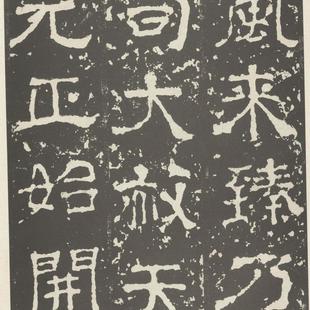 風來臻乃
司大赦天
元正始開